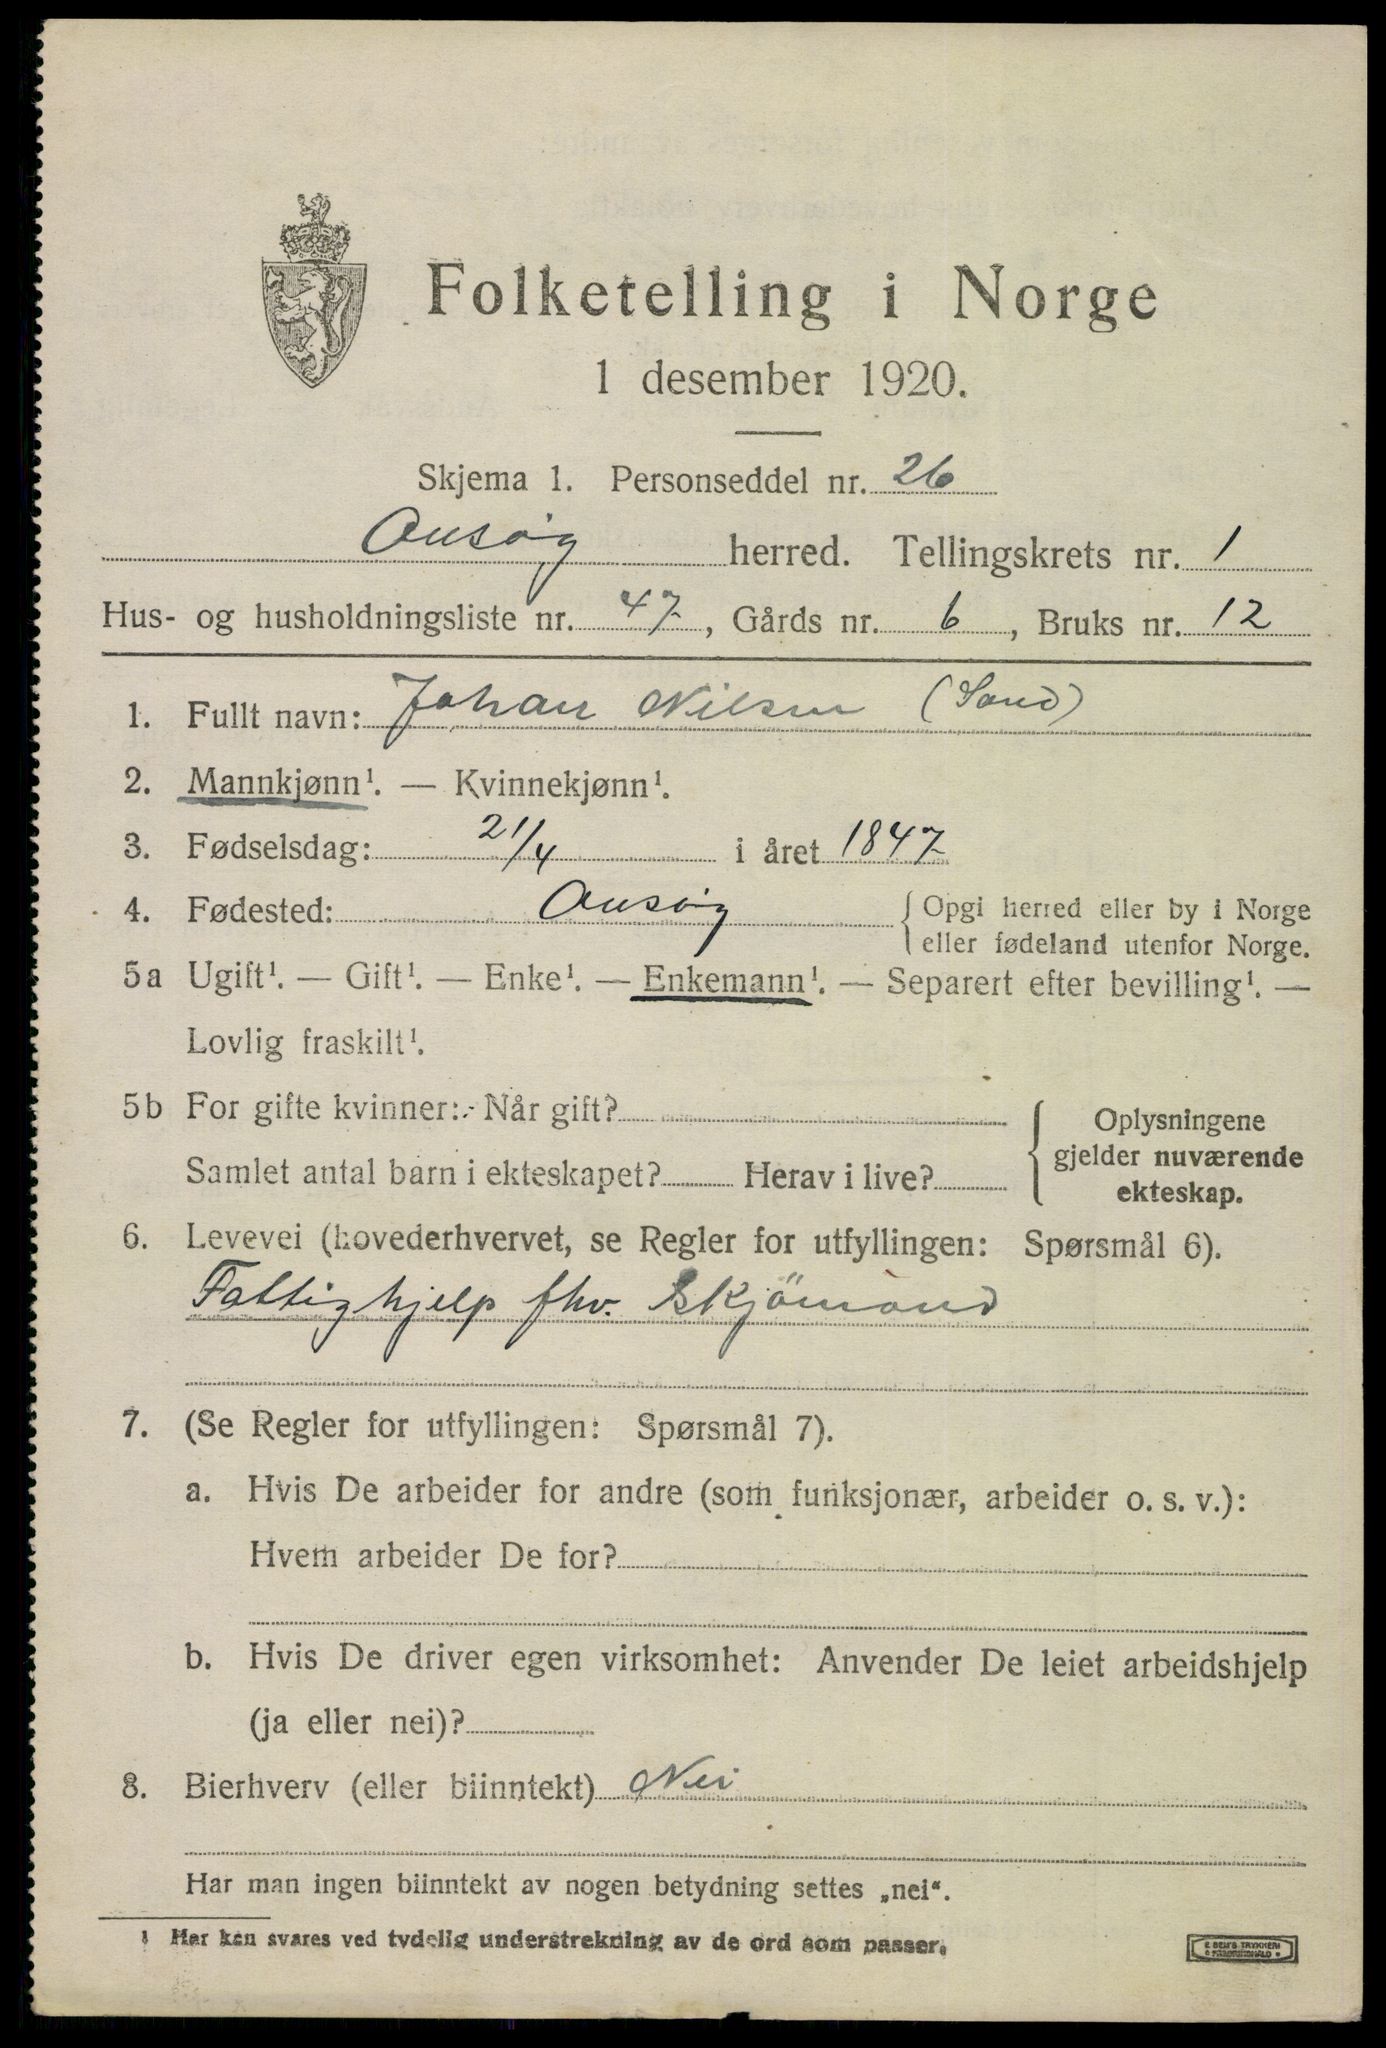 Folketelling i Norge
1 desember 1920.
Skjema 1. Personseddel nr. 26
Onsøy herred. Tellingskrets nr. 1
Hus- og husholdningsliste nr. 47, Gårds nr. 6, Bruks nr. 12
1. Fullt navn: Johan Nilsen (Sand)
2. Mannkjønn¹. — Kvinnekjønn¹.
3. Fødselsdag: 21/4 i året 1847
4. Fødested: Onsøy { Opgi herred eller by i Norge
eller fødeland utenfor Norge.
5a Ugift¹. — Gift¹. — Enke¹. — Enkemann¹. — Separert efter bevilling¹. —
Lovlig fraskilt¹.
5b For gifte kvinner: Når gift?
Samlet antal barn i ekteskapet? Herav i live?
{ Oplysningene
gjelder nuværende
ekteskap.
6. Levevei (hovederhvervet, se Regler for utfyllingen: Spørsmål 6).
Fattighjelp fhv. Skjömand
7. (Se Regler for utfyllingen: Spørsmål 7).
a. Hvis De arbeider for andre (som funksjonær, arbeider o. s. v.):
Hvem arbeider De for?
b. Hvis De driver egen virksomhet: Anvender De leiet arbeidshjelp
(ja eller nei)?
8. Bierhverv (eller biinntekt) Nei
Har man ingen biinntekt av nogen betydning settes „nei“.
¹ Her kan svares ved tydelig understrekning av de ord som passer.